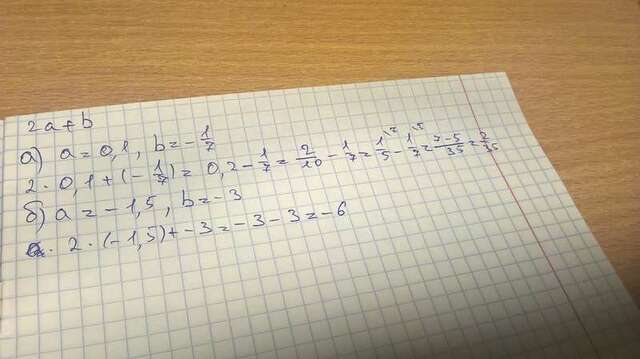 2a+b
а) a = 0,1, b = -1/7
2 · 0,1 + (-1/7) = 0,2 - 1/7 = 2/10 - 1/7 = 1/5 \7 - 1/7 \5 = 7-5/35 = 2/35
б) a = -1,5, b = -3
2 · (-1,5) + -3 = -3 - 3 = -6